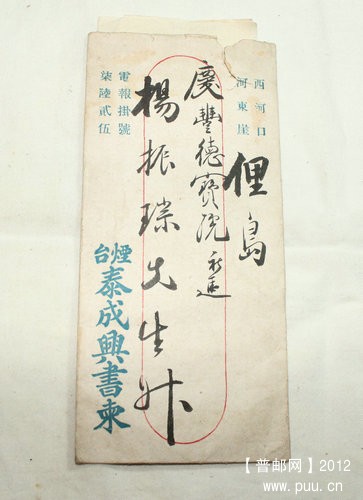 西河口
河東崖
俚島
慶豐德寶號
楊振琮先生升
電報掛號
柒陸貳伍
煙台
泰成興書柬
【普邮网】2012
www.puu.cn